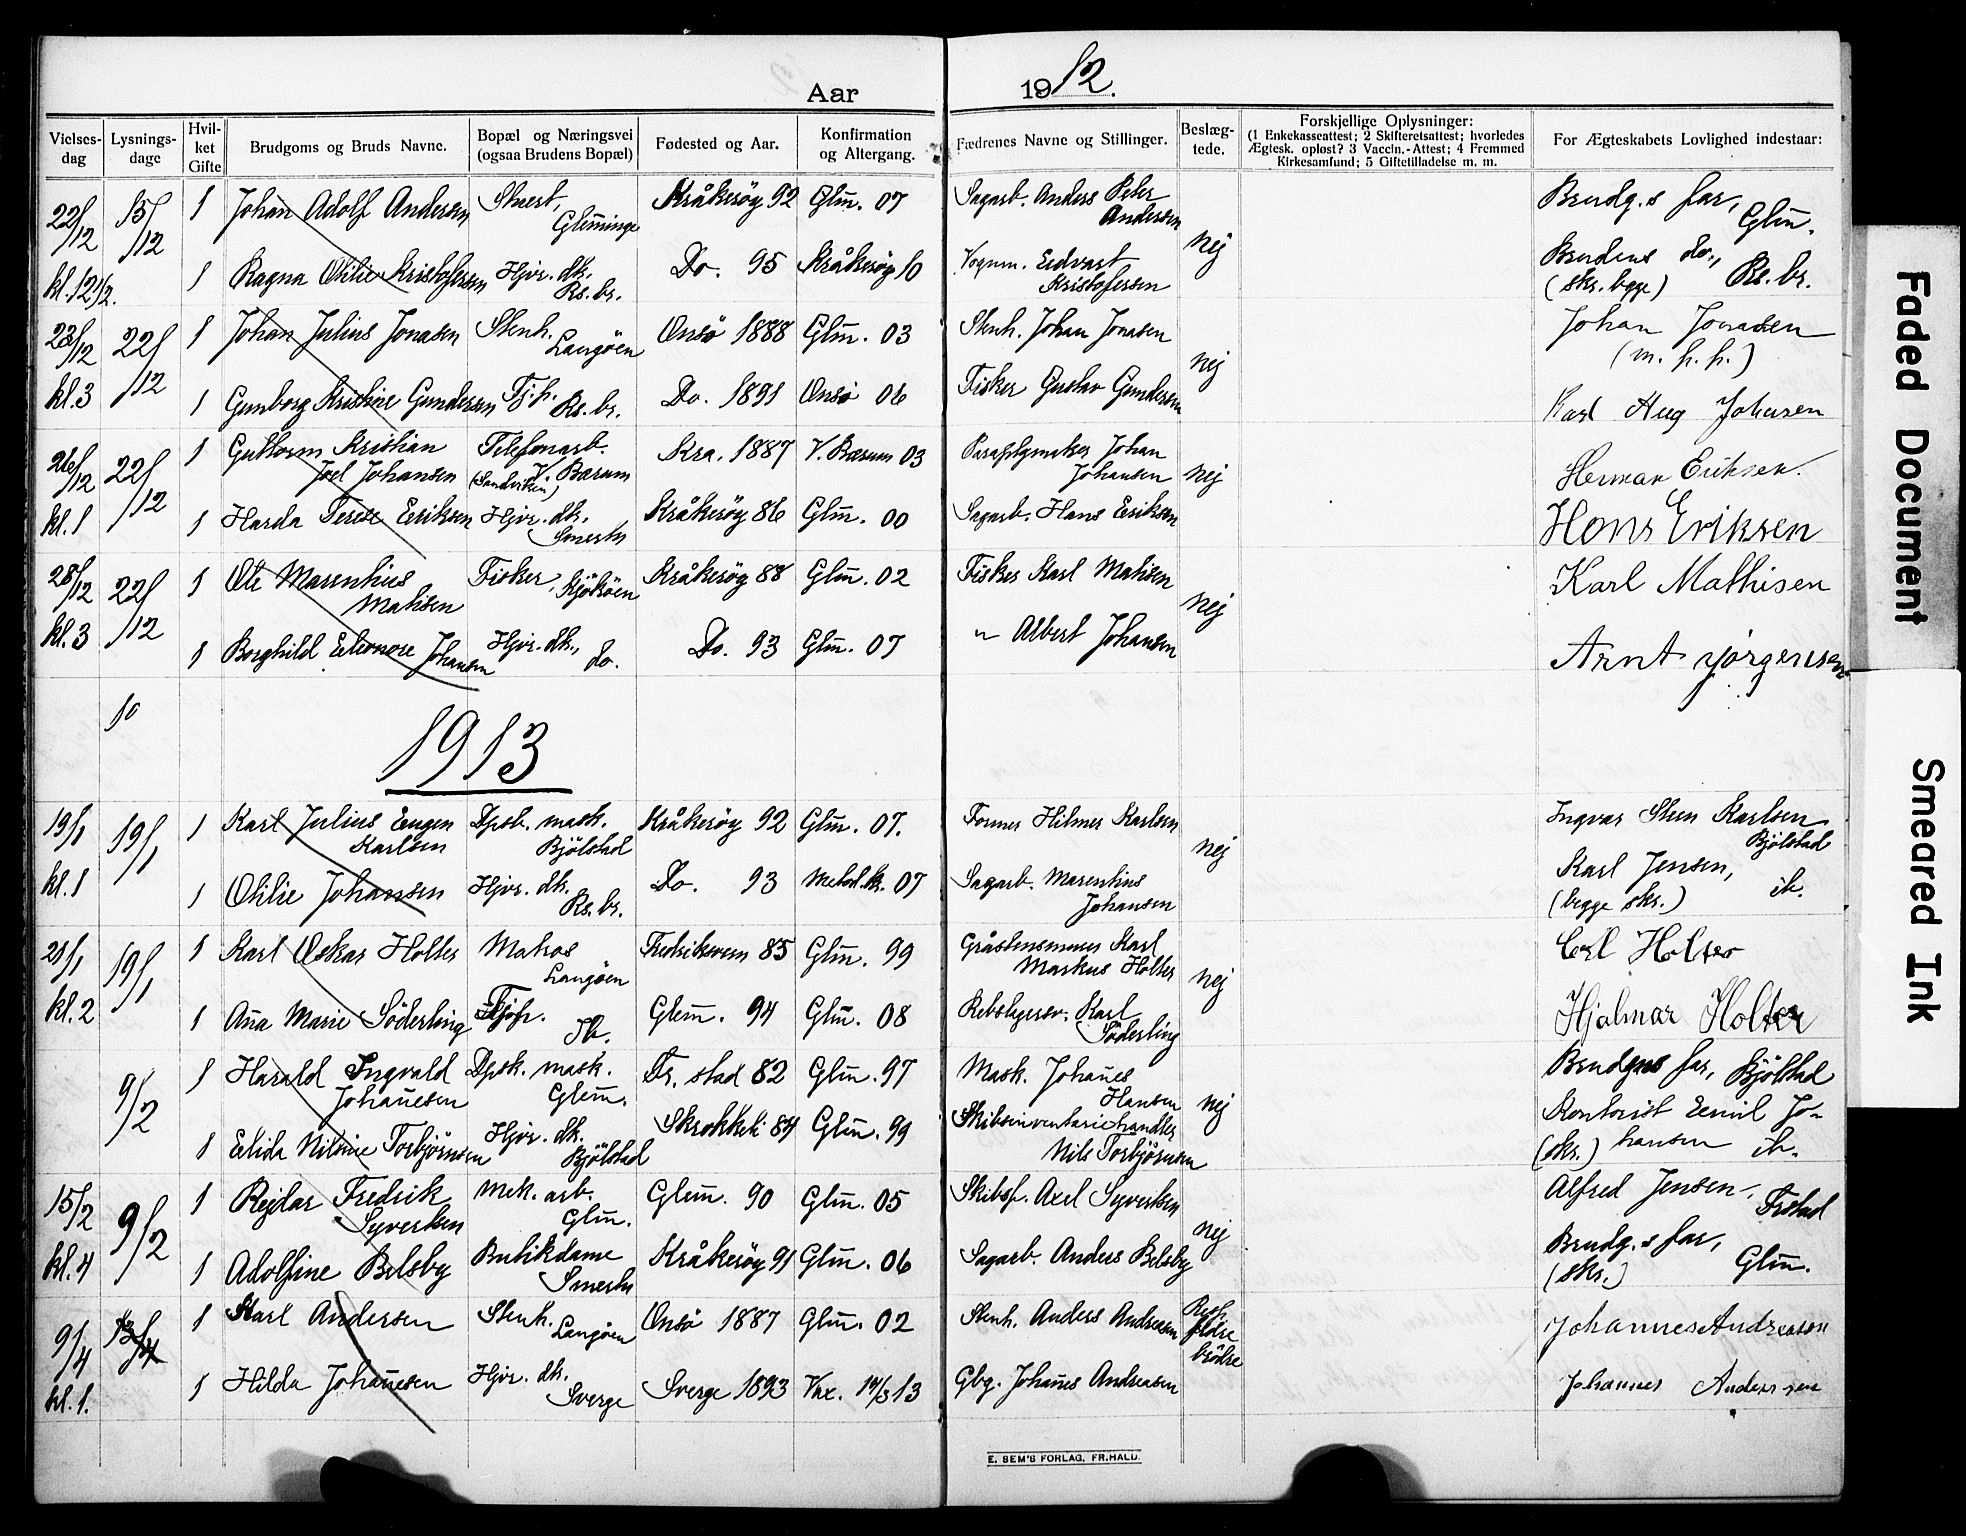 Aar 1912.
Vielses-dag
Lysnings-dage
Hvil-ket Gifte
Brudgoms og Bruds Navne.
Bopæl og Næringsvei (ogsaa Brudens Bopæl)
Fødested og Aar.
Konfirmation og Altergang.
Fædrenes Navne og Stillinger.
Beslæg-tede.
Forskjellige Oplysninger:
(1 Enkekasseattest; 2 Skifteretsattest; hvorledes
Ægtesk. opløst? 3 Vaccin.-Attest; 4 Fremmed
Kirkesamfund; 5 Giftetilladelse m. m.
For Ægteskabets Lovlighed indestaar:
22/12 15/12 1 Johan Adolf Andersen Glemminge Kråkeröy 92 Glm. 07 Sagarb. Anders Peter Andersen nej Brudg.s far, Glm.
kl. 12 1/2. 1 Ragna Othilie Kristofersen Hjvr. dk. Rs. br. Do. 95 Kråkeröy 10 Vognm. Edvart Kristofersen Brudens do., Rs. br.
(skr. begge)
23/12 22/12 1 Johan Julius Jonasen Stenh. Langöen Onsö 1888 Glm. 03 Stenh. Johan Jonasen nej Johan Jonasen
(m. p. p.)
kl. 3 1 Gunborg Kristine Gundersen Tj.p. Rs. br. Do. 1891 Onsö 06 Fisker Gustav Gundersen Karl Aug Johansen
26/12 22/12 1 Guttorm Kristian Joel Johansen Telefonarb. V. Bærum (Sandviken) Kra. 1887 V. Bærum 03 Paraplymaker Johan Johansen nej Herman Eriksen.
kl. 1 1 Harda Terese Eriksen Hjvr. dk. Smertu Kråkeröy 86 Glm. 00 Sagarb. Hans Eriksen Hans Eriksen
28/12 22/12 1 Ole Marenthius Mathisen Fisker, Kjököen Kråkeröy 88 Glm. 02 Fisker Karl Mathisen nej Karl Mathisen
kl. 3 1 Borghild Eleonore Johansen Hjvr. dk., do. Do. 93 Glm. 07 " Albert Johansen Arnt Jørgensen
10
1913
19/1 19/1 1 Karl Julius Eugen Karlsen Dpsk. mask. Bjölstad Kråkeröy 92 Glm. 07. Former Hilmer Karlsen nej Ingvar Steen Karlsen Bjölstad
kl. 1 1 Othilie Johansen Hjvr. dk. Rs. br. Do. 93 Metod. k. 07 Sagarb. Marenthius Johansen Karl Jensen, ib.
(begge skr.)
21/1 19/1 1 Karl Oskar Holter Matros Langöen Fredriksværn 85 Glm. 99 Gråstensminer Karl Markus Holter nej Carl Holter
kl. 2 1 Anna Marie Söderling Tjp. Ib. Glem. 94 Glm. 08 Rebslagersv. Karl Söderling Hjalmar Holter
9/2 1 Harald Ingvald Johannesen Dpsk. mask. Glem. Fr. stad 82 Glm. 97 Mask. Johannes Hansen nej Brudgms far, Bjölstad
1 Elida Nilsine Torbjörnsen Hjvr. dk. Bjölstad 84 Glm. 99 Skibsinventariehandler Nils Torbjörnsen Kontorist Emil Johansen ib.
(skr.)
15/2 9/2 1 Rejdar Fredrik Syvertsen Mek. arb. Glm. Glem. 90 Glm. 05 Skibsf. Axel Syvertsen nej Alfred Jensen, Frstad
kl. 4 1 Adolfine Belsby Butikdame Smertu Kråkeröy 91 Glm. 06 Sagarb. Anders Belsby Brudg.s far, Glm.
(skr.)
9/4 13/4 1 Karl Andersen Stenh. Langöen Onsö 1887 Glm. 02 Stenh. Anders Andreasen fædre brödre Johannes Andreasen
kl. 1. 1 Hilda Johannesen Hjvr. dk. Sverge Sverge 1893 Vax. 14/3 13 Gbg. Johannes Andreasen Johannes Anderssen
E. SEM'S FORLAG, FR.HALD.
Faded Document
Smeared Ink